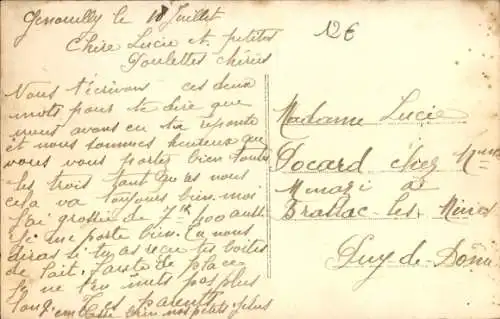 Genouilly le 18 Juillet
12€
Chère Lucie et petites
Poulettes chéries
Nous t'écrivons ces deux
mots pour te dire que
nous avons eu ta réponse
et nous sommes heureux que
vous vous portez bien toutes
les trois tant qu'a nous
cela va toujours bien. moi
j'ai grossie de 7k 400 aussi
je me porte bien. Tu nous
diras si tu as reçu tes boites
de lait. faute de place
je ne t'en mets pas plus
long. Tes parents
bien nos petits plus
Madame Lucie
Pocard chez Mme
à
Brassac-les-Mines
Puy-de-Dôme